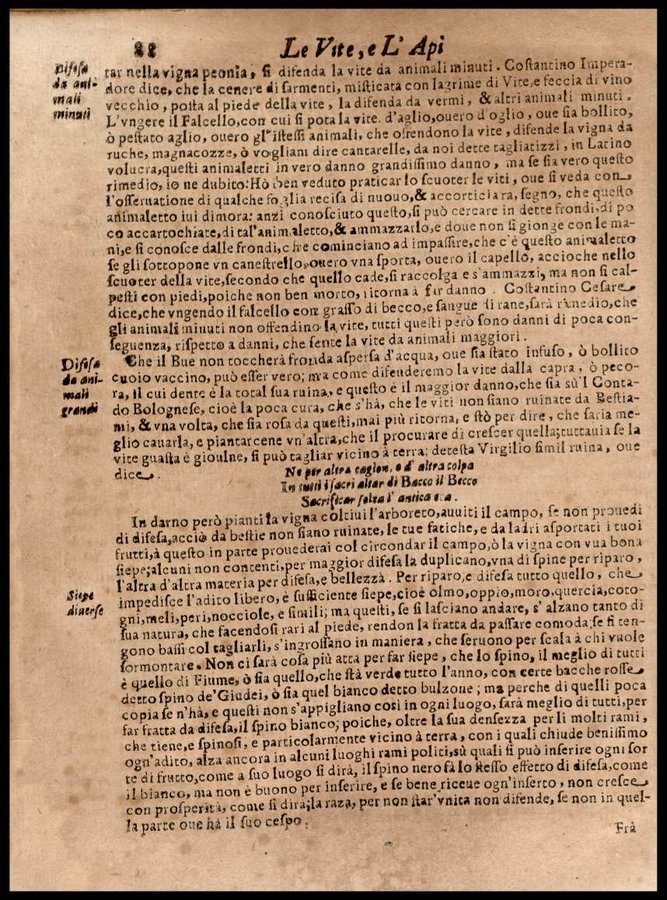 88
Le Vite, e L' Api
Difesa
da ani-
mali
minuti
tar nella vigna peonia, si difenda la vite da animali minuti. Costantino Impera-
dore dice, che la cenere di sarmenti, misticata con lagrime di Vite, e feccia di vino
vecchio, posta al piede della vite, la difenda da vermi, & altri animali minuti.
L'vngere il Falcello, con cui si pota la vite. d'aglio, ouero d'oglio, oue sia bollito,
ò pestato aglio, ouero gl'istessi animali, che offendono la vite, difende la vigna da
ruche, magnacozze, ò vogliam dire cantarelle, da noi dette tagliatizzi, in Latino
volucra, questi animaletti in vero danno grandissimo danno, ma se sia vero questo
rimedio, io ne dubito: Hò ben veduto praticar lo scuoter le viti, oue si veda con
l'osseruatione di qualche foglia recisa di nuouo, & accorticiara, segno, che questo
animaletto iui dimora: anzi conosciuto questo, si può cercare in dette frondi, di po
co accartochiate, di tal'animaletto, & ammazzarlo, e doue non si gionge con le ma-
ni, e si conosce dalle frondi, che cominciano ad impassire, che c'è questo animaletto
se gli sottopone vn canestrello, ouero vna sporta, ouero il capello, accioche nello
scuoter della vite, secondo che quello cade, si raccolga e s'ammazzi, ma non si cal-
pesti con piedi, poiche non ben morto, ritorna à far danno. Costantino Cesare
dice, che vngendo il falcello con grasso di becco, e sangue di rane, sarà rimedio, che
gli animali minuti non offendino la vite, tutti questi però sono danni di poca con-
seguenza, rispetto a danni, che sente la vite da animali maggiori.
Difesa
da ani-
mali
grandi
Che il Bue non toccherà fronda aspersa d'acqua, oue sia stato infuso, ò bollito
cuoio vaccino, può esser vero; ma come difenderemo la vite dalla capra, ò peco-
ra, il cui dente è la total sua ruina, e questo è il maggior danno, che sia sù'l Conta-
do Bolognese, cioè la poca cura, che s'hà, che le viti non siano ruinate da Bestia-
mi, & vna volta, che sia rosa da questi, mai più ritorna, e stò per dire, che saria me-
glio cauarla, e piantarcene vn'altra, che il procurare di crescer quella; tuttauia se la
vite guasta è gioulne, si può tagliar vicino à terra: detesta Virgilio simil ruina, oue
dice.
Ne per altra cagion, o d' altra colpa
In tutti i sacri altar di Bacco il Becco
Sacrificar solea l' antica età.
In darno però pianti la vigna coltiui l'arboreto, auuiti il campo, se non prouedi
di difesa, acciò da bestie non siano ruinate, le tue fatiche, e da ladri asportati i tuoi
frutti, à questo in parte prouederai col circondar il campo, ò la vigna con vna bona
siepe; alcuni non contenti, per maggior difesa la duplicano, vna di spine per riparo,
l'altra d'altra materia per difesa, e bellezza. Per riparo, e difesa tutto quello, che
Siepe
diuerse
impedisce l'adito libero, è sufficiente siepe, cioè olmo, oppio, moro, quercia, coto-
gni, meli, peri, nocciole, e simili; ma questi, se si lasciano andare, s' alzano tanto di
sua natura, che facendosi rari al piede, rendon la fratta da passare comoda; se si ten-
gono bassi col tagliarli, s'ingrossano in maniera, che seruono per scala à chi vuole
sormontare. Non ci sarà cosa più atta per far siepe, che lo spino, il meglio di tutti
è quello di Fiume, ò sia quello, che stà verde tutto l'anno, con certe bacche rosse
detto spino de'Giudei, ò sia quel bianco detto bulzone; ma perche di quelli poca
copia se n'hà, e questi non s'appigliano così in ogni luogo, sarà meglio di tutti, per
far fratta da difesa, il spino bianco; poiche, oltre la sua densezza per li molti rami,
che tiene, e spinosi, e particolarmente vicino à terra, con i quali chiude benissimo
ogn'adito, alza ancora in alcuni luoghi rami politi, sù quali si può inserire ogni sor
te di frutto, come a suo luogo si dirà, il spino nero fà lo stesso effetto di difesa, come
il bianco, ma non è buono per inserire, e se bene riceue ogn'inserto, non cresce
con prosperità, come si dira; la raza, per non star'vnita non difende, se non in quel-
la parte oue hà il suo cespo.
Frà